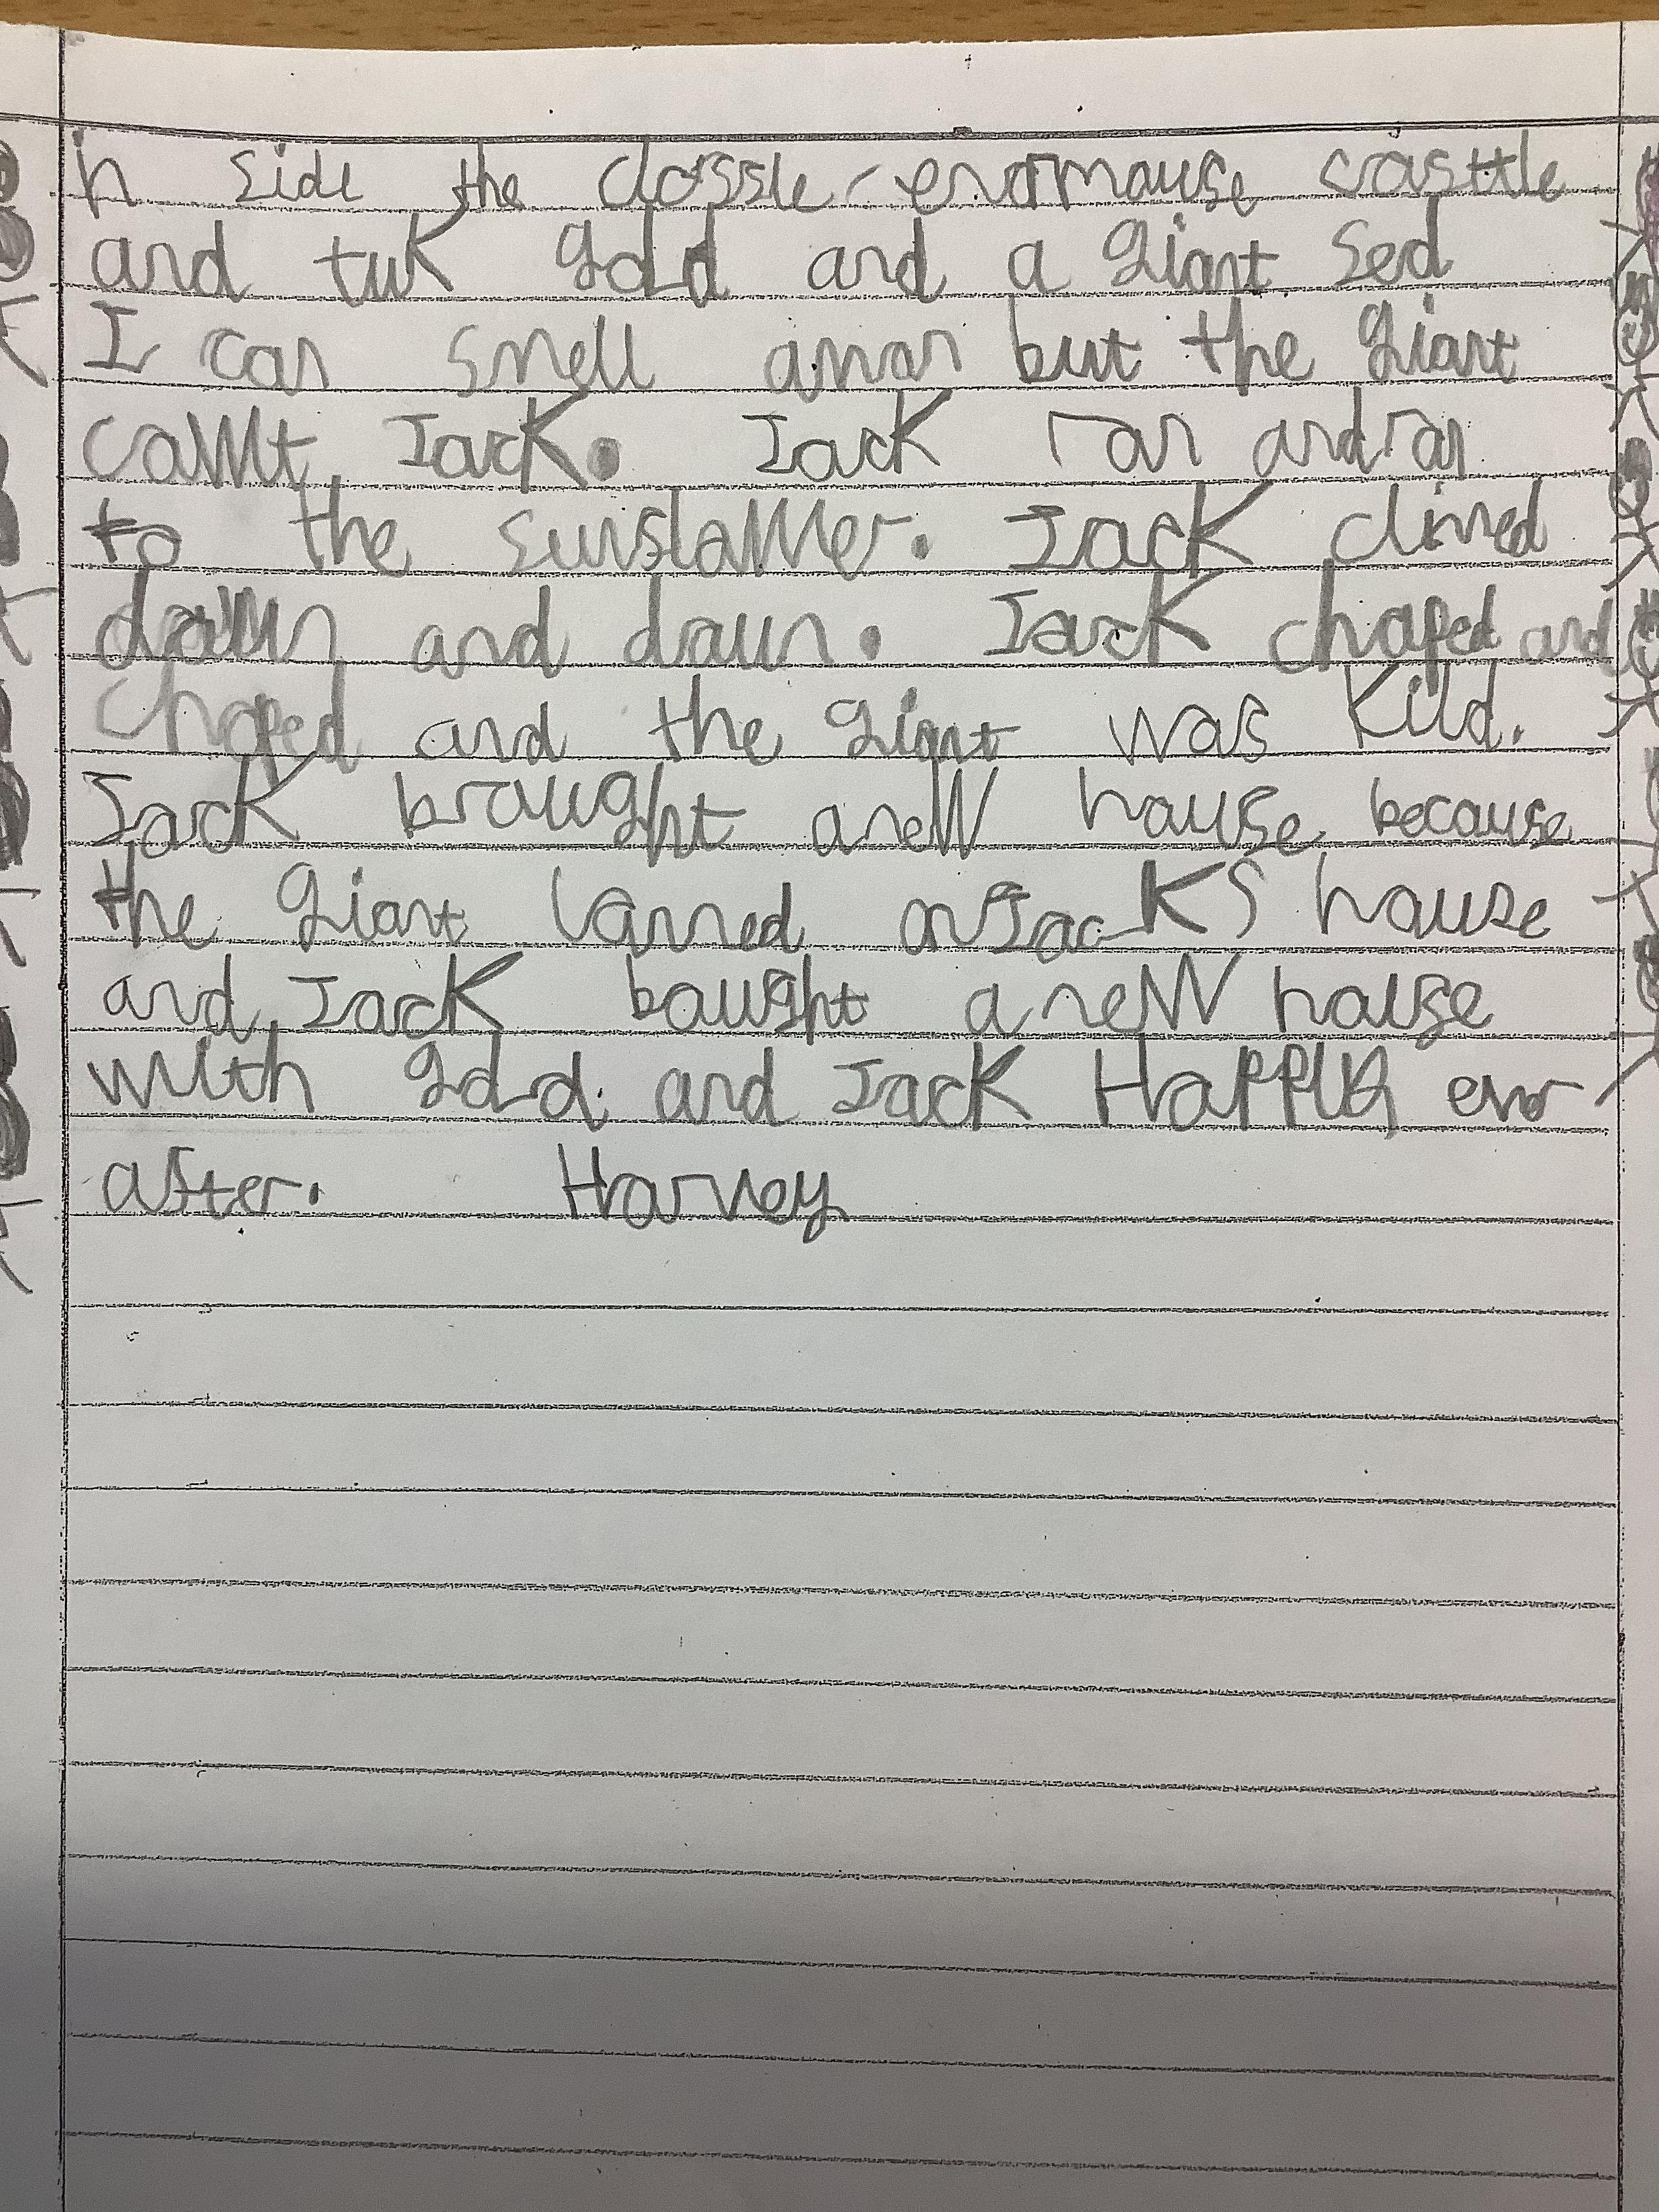 in side the clossle enormouse casttle
and tuk gold and a giant sed
I can smell a man but the giant
cawt Jack. Jack ran and ran
to the Jack climed
dawn and daun. Jack choped and
choped and the giant was kild.
Jack brought a new house because
the giant lanned on Jacks house
and Jack bought a new house
with gold. and Jack Happily evr
after. Harvey